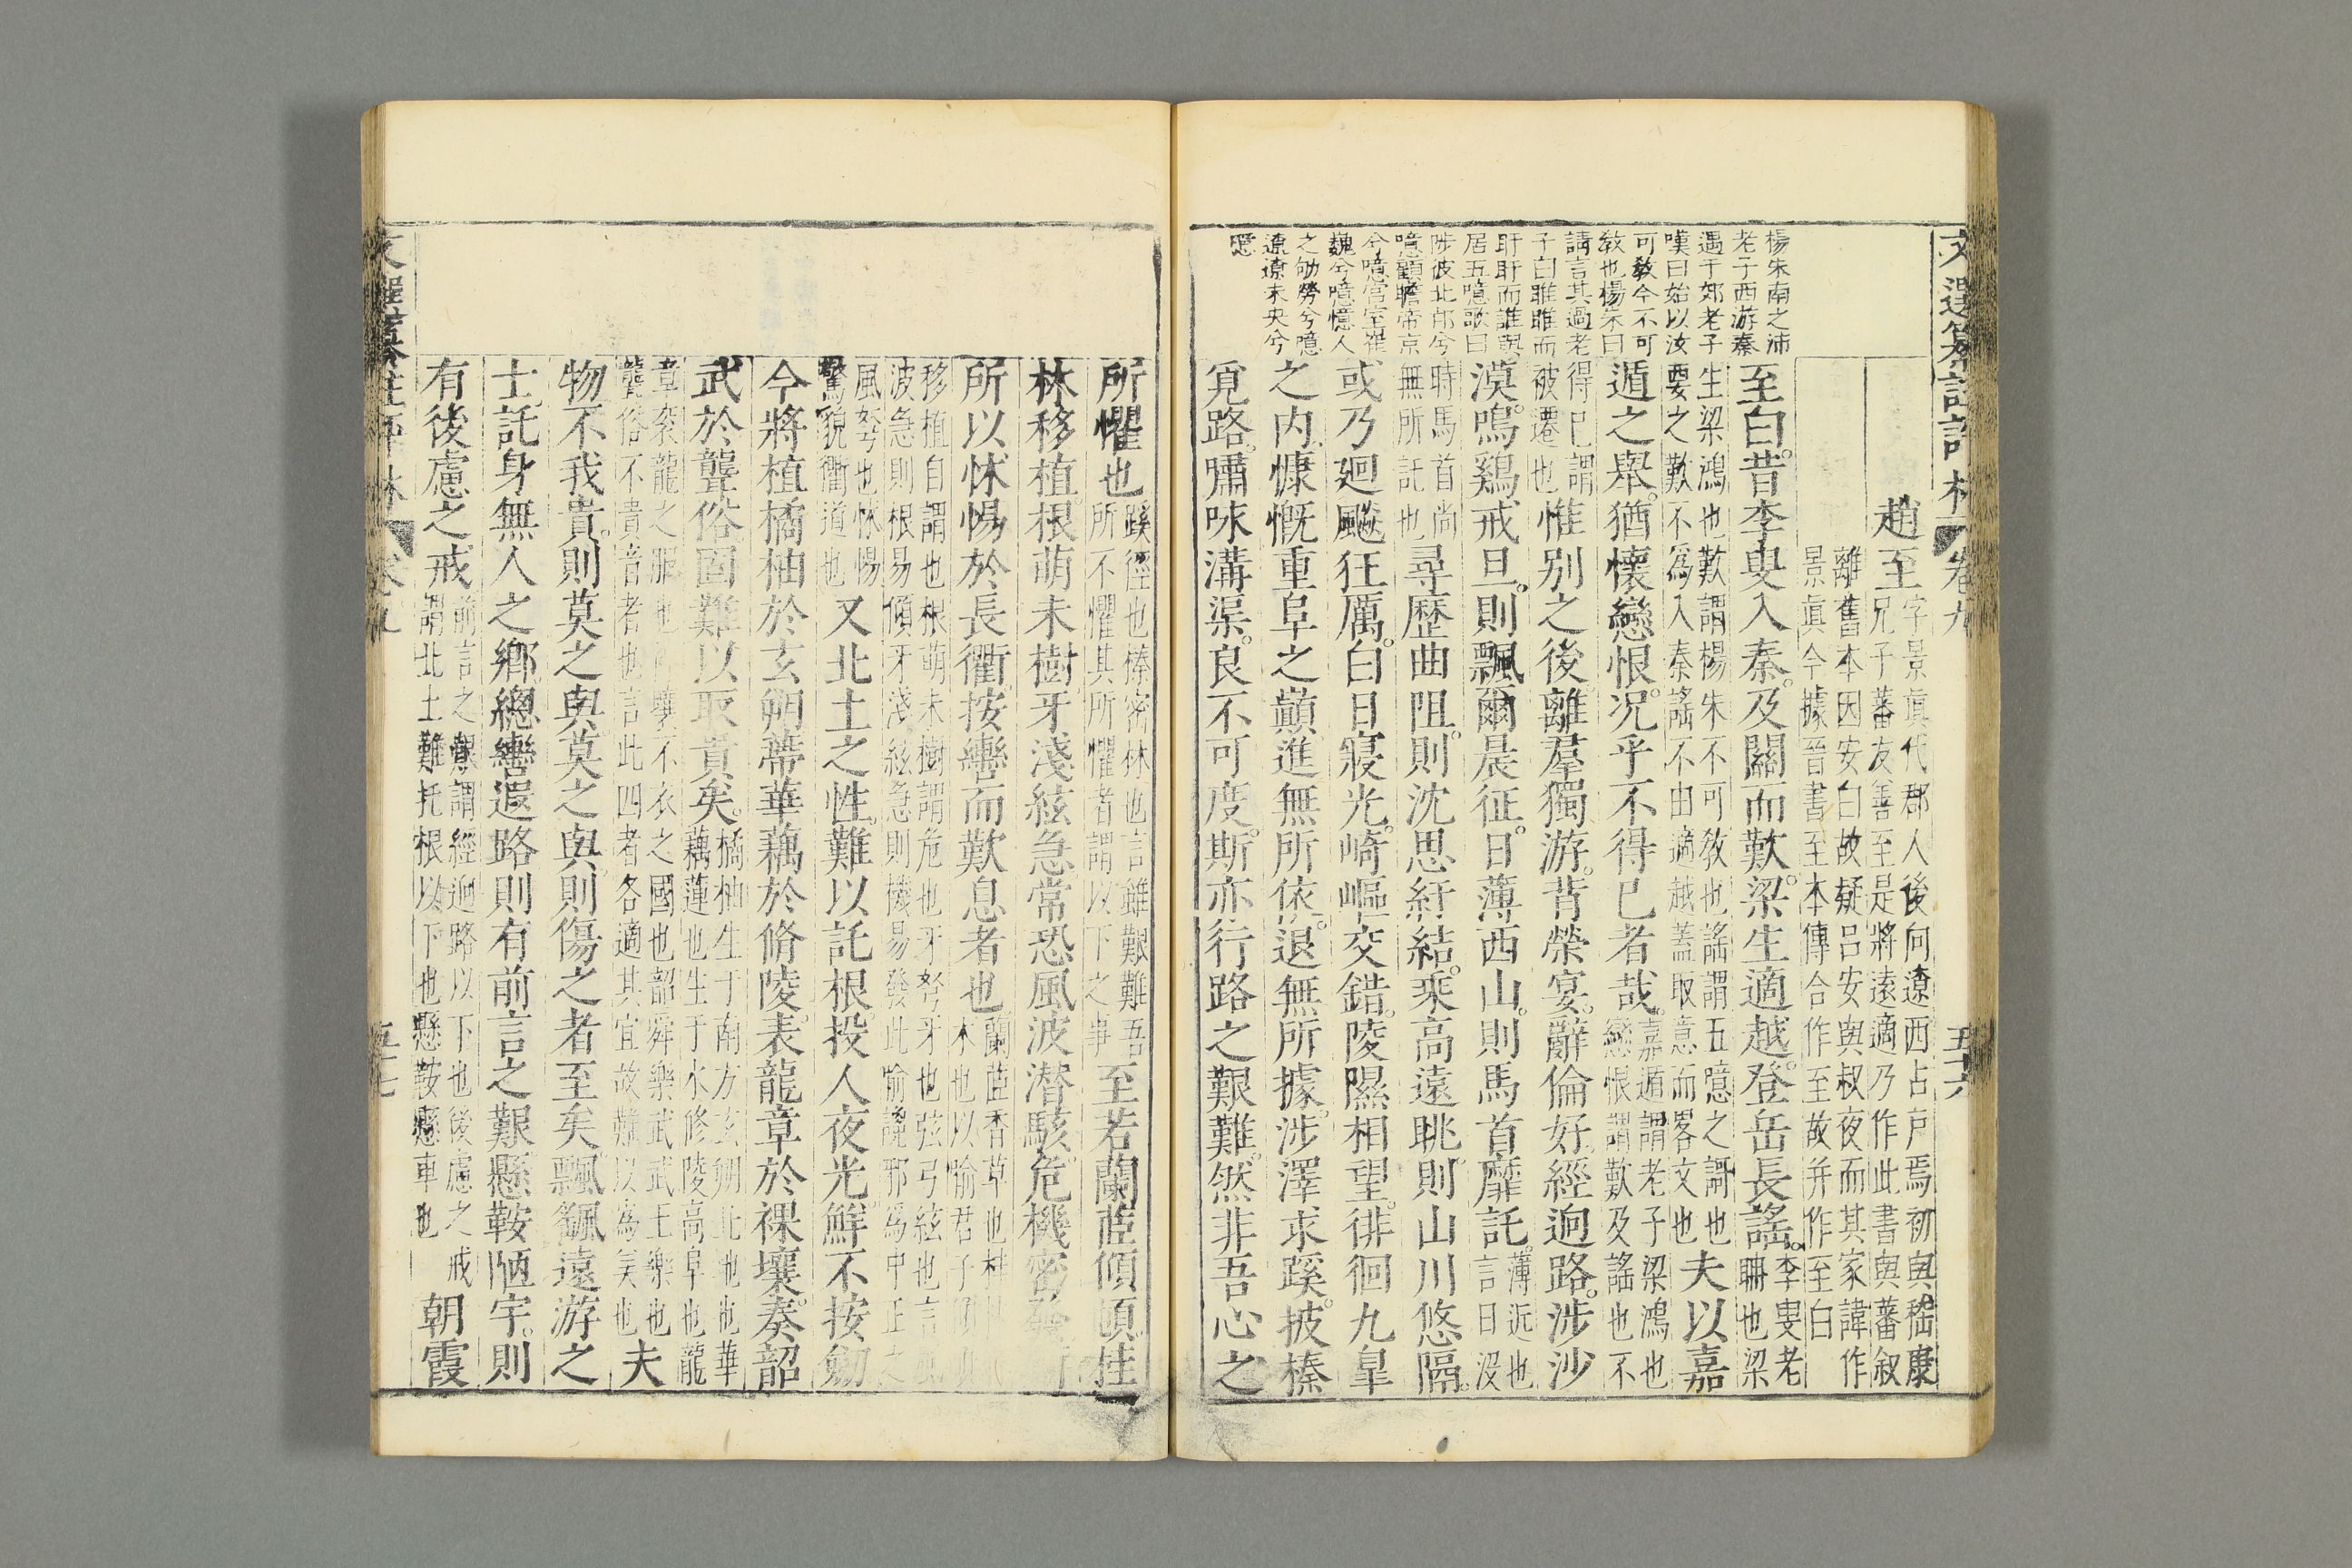 文選纂註評林
卷九
五十六
楊朱南之沛
老子西游秦
遇于郊老子
嘆曰始以汝
可教今不可
教也楊朱曰
請言其過老
子曰雎雎而
盱盱而誰與
居五噫歌曰
陟彼北邙兮
噫顧瞻帝京
兮噫宮室崔
巍兮噫憶人
之劬勞兮噫
遼遼未央兮
噫
趙至
字景真代郡人後向遼西占戶焉初與嵇康
兄子蕃友善至是將遠適乃作此書與蕃叙
離舊本因安白故疑呂安與叔夜而其家諱作
景真今據晉書至本傳合作至故并作至白
至白。昔李叟入秦。及關而歎。梁生適越。登岳長謠。
李叟老
聃也梁
生梁鴻也歎謂楊朱不可教也謠謂五噫之謌也
要之歎不爲入秦謠不由適越蓋取意而畧文也
夫以嘉
遁之舉。猶懷戀恨。況乎不得已者哉。
嘉遁謂老子梁鴻也
戀恨謂歎及謠也不
得已謂
被遷也
惟别之後。離羣獨游。背榮宴。辭倫好。經迥路。涉沙
漠。鳴鷄戒旦。則飄爾晨征。日薄西山。則馬首靡託。
薄近也
言日没
時馬首尚
無所託也
尋歷曲阻。則沈思紆結。乘高遠眺。則山川悠隔。
或乃廻飈狂厲。白日寢光。崎嶇交錯。陵隰相望。徘徊九皐
之内。慷慨重阜之巔。進無所依。退無所據。涉澤求蹊。披榛
覓路。嘯咏溝渠。良不可度。斯亦行路之艱難。然非吾心之
所懼也
蹊徑也榛密林也言雖艱難吾
所不懼其所懼者謂以下之事
至若蘭茝傾頓。桂
林移植。根萌未樹。牙淺絃急。常恐風波潛駭。危機密發。
所以怵惕於長衢。按轡而歎息者也
蘭茝香草也桂
木也以喻君子
移植自謂也根萌未樹謂危也牙弩牙也弦弓絃也言
波急則根易傾牙淺絃急則機易發此喻讒邪爲中正之
風弩也怵惕
驚貌衢道也
又北土之性。難以託根。投人夜光。鮮不按劒。
今將植橘柚於玄朔。蔕華藕於脩陵。表龍章於裸壤。奏韶
武於聾俗。固難以取貴矣。
橘柚生于南方玄朔北也華
藕蓮也生于水修陵高阜也龍
章衮龍之服也裸壤不衣之國也韶舜樂武武王樂也
聾俗不貴音者也言此四者各適其宜故難以爲美也
夫
物不我貴。則莫之與。莫之與。則傷之者至矣。飄颻遠游之
士。託身無人之鄉。總轡遐路。則有前言之艱。懸鞍陋宇。則
有後慮之戒。
前言之艱謂經迥路以下也後慮之戒
謂北土難托根以下也懸鞍懸車也
朝霞
文選纂註評林
五十七